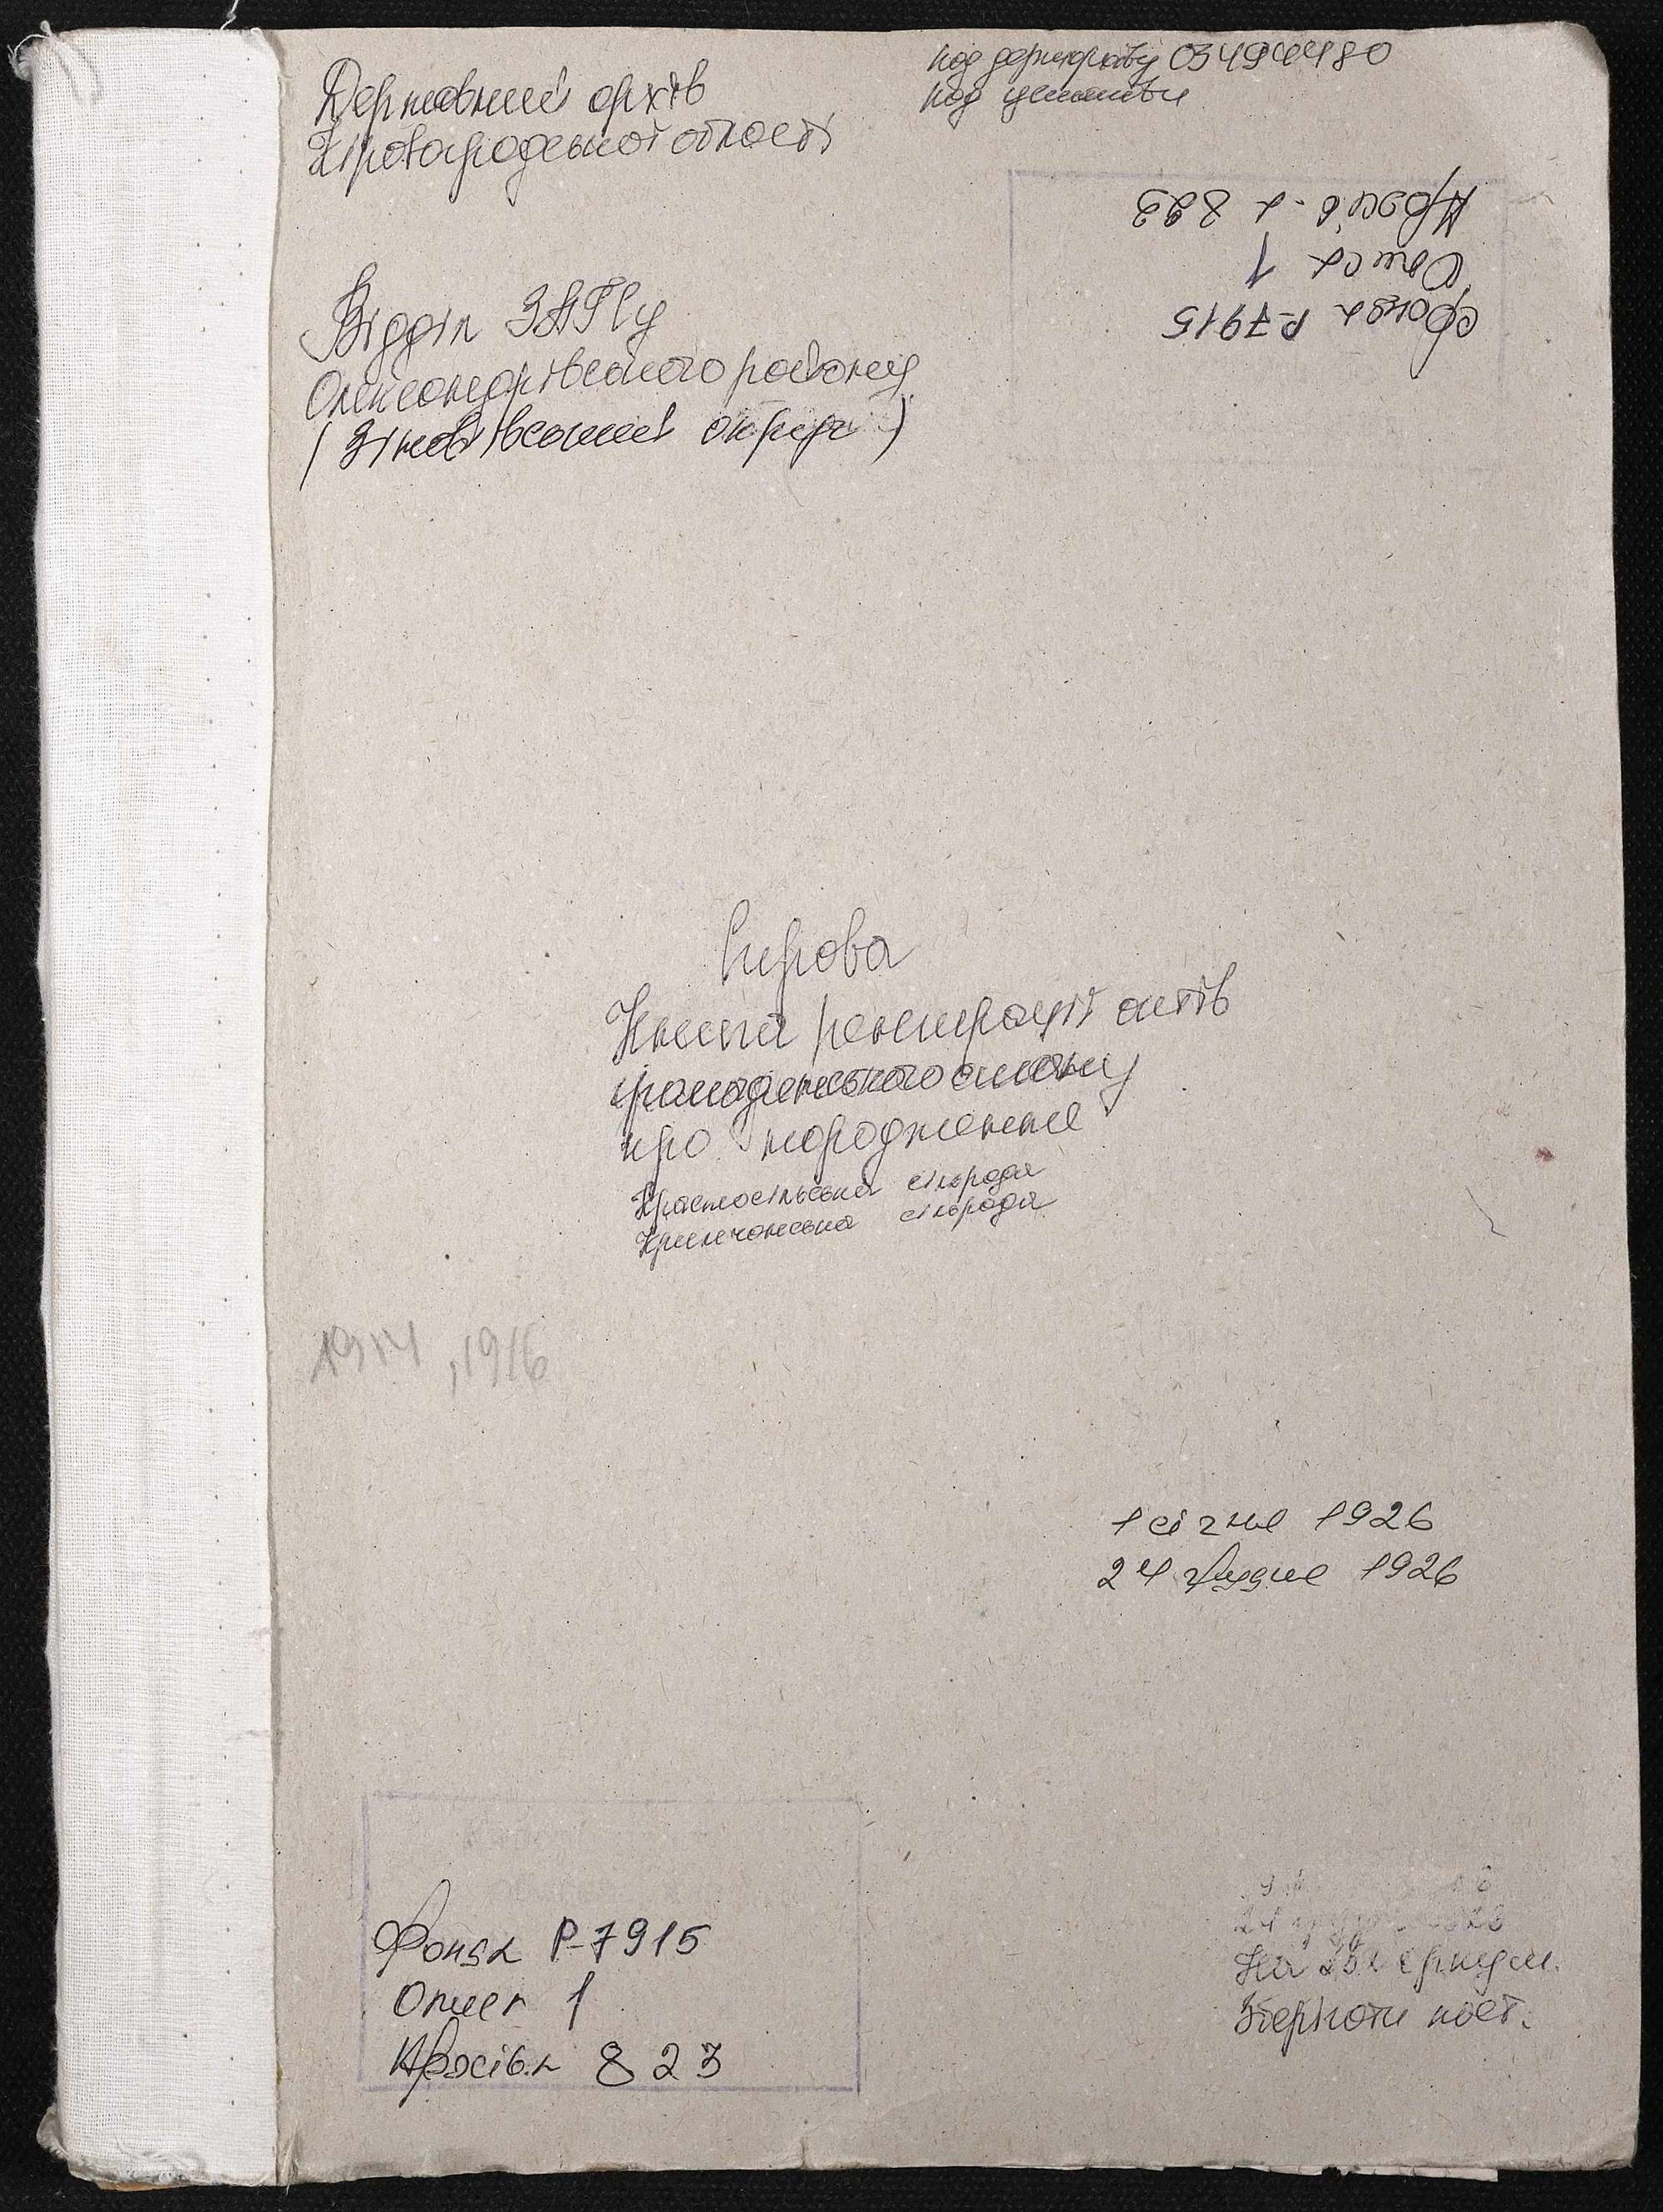 Державний архів
Кіровоградської області
код держархіву 03494480
код установи
Фонд Р-7915
Опис 1
Архів. 823
Відділ ЗАГСу
Олександрівського району
(Зінов'ївський округ)
Книга реєстрації актів
громадянського стану
про народження
Красносільська сільрада
Кримчанська сільрада
1914, 1916
1 січня 1926
24 грудня 1926
Фонд Р-7915
Опис 1
Архів. 823
На аркуш.
Зберігати пост.